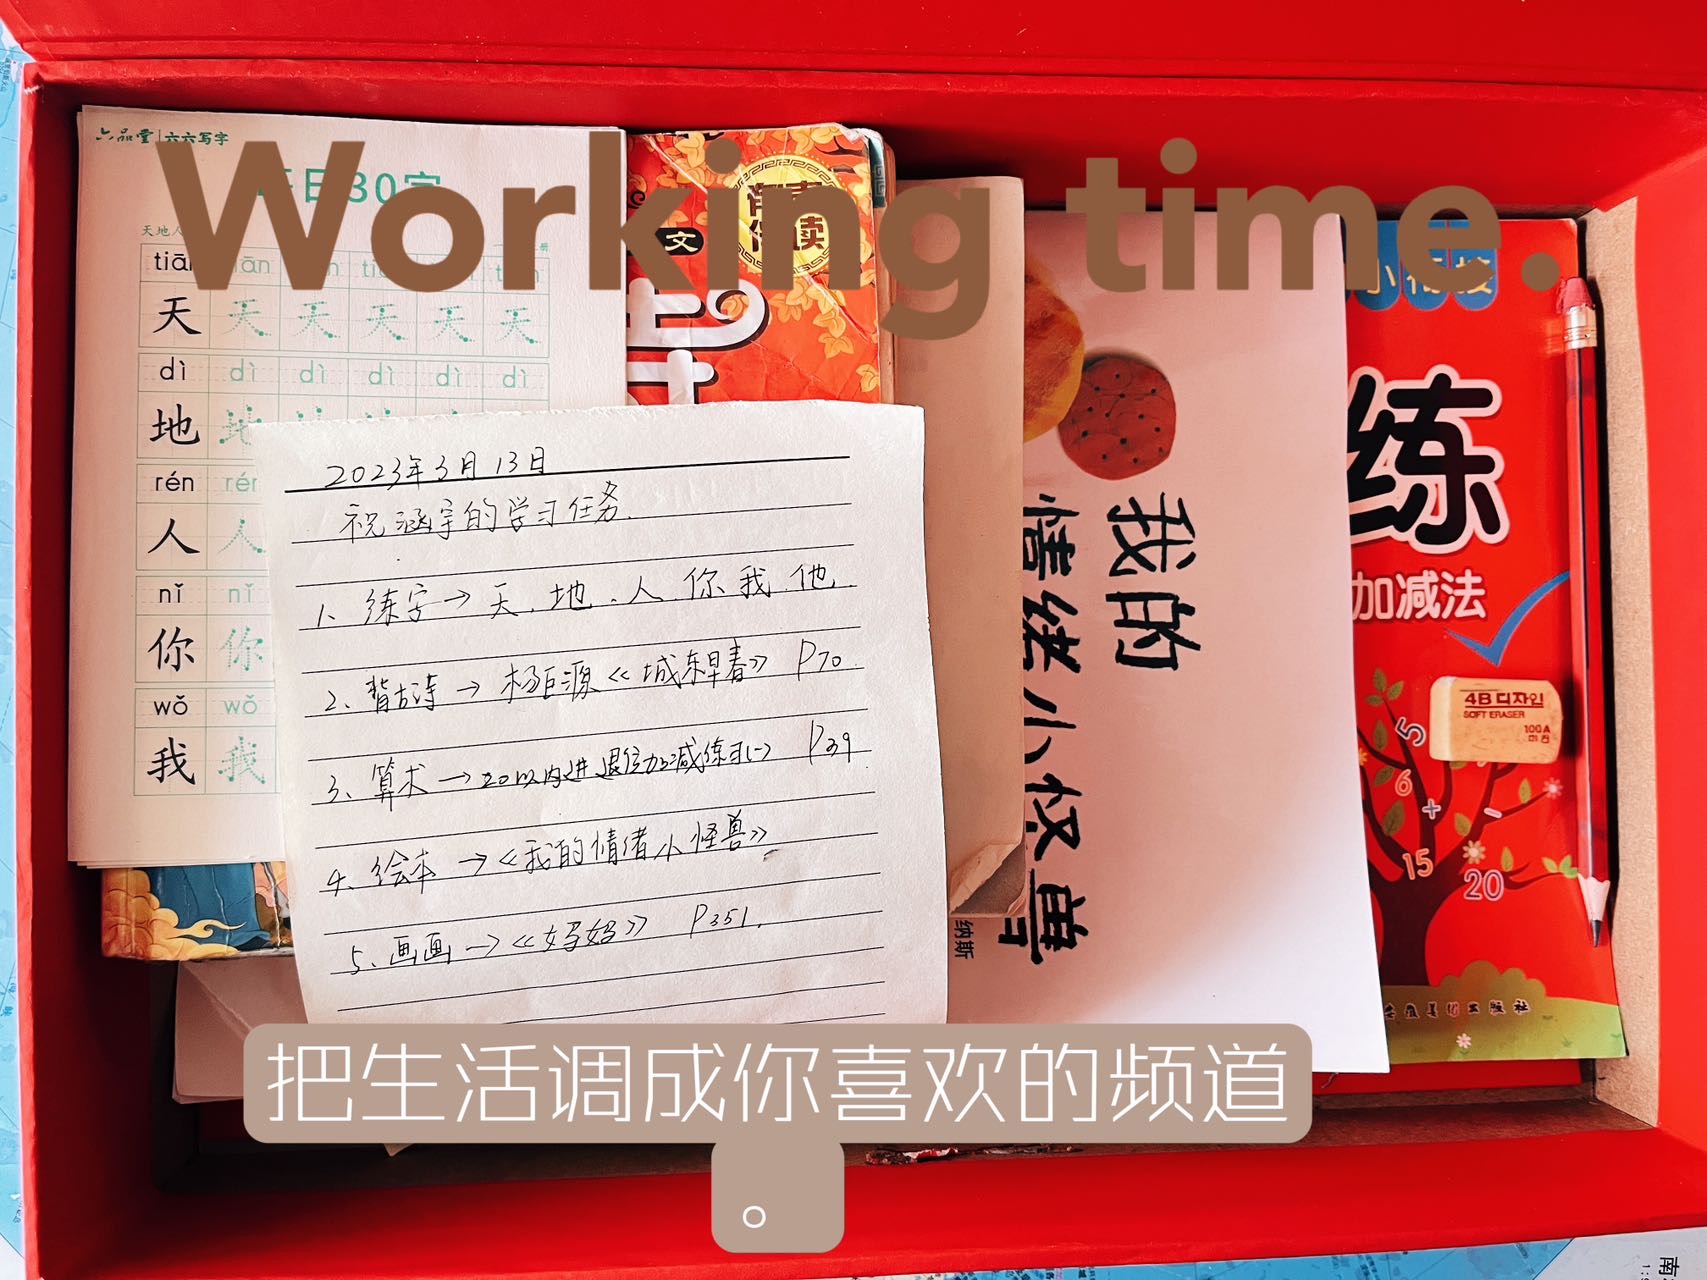 六品堂 六六写字
Working time.
日30字
天地人
tiān
天 天 天 天 天 天
dì dì dì dì dì dì
地
rén
人 人
nǐ nǐ
你 你
wǒ wǒ
我 我
文
2023年3月13日
祝涵宇的学习任务.
1、练字→天.地.人.你.我.他.
2、背古诗→杨巨源《城东早春》P70.
3、算术→20以内进退位加减练习(一) P39.
4、绘本→《我的情绪小怪兽》
5、画画→《妈妈》 P351.
我的
情绪小怪兽
纳斯
练
加减法
4B 디자인
SOFT ERASER
100A
5
6
+
-
15
20
安徽美术出版社
把生活调成你喜欢的频道
。
南